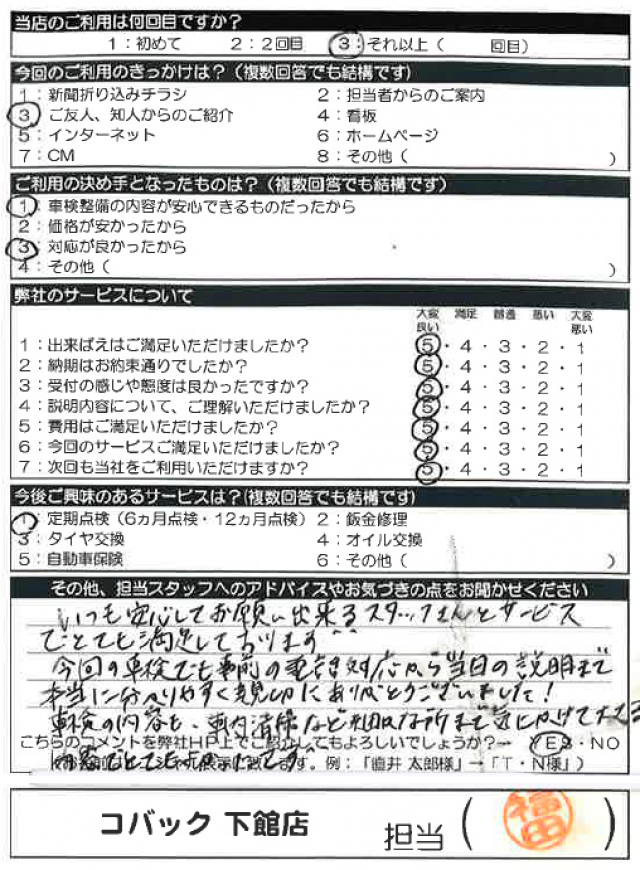 当店のご利用は何回目ですか？
1：初めて 2：2回目 3：それ以上（ 回目）
今回のご利用のきっかけは？（複数回答でも結構です）
1：新聞折り込みチラシ 2：担当者からのご案内
3：ご友人、知人からのご紹介 4：看板
5：インターネット 6：ホームページ
7：CM 8：その他（ ）
ご利用の決め手となったものは？（複数回答でも結構です）
1：車検整備の内容が安心できるものだったから
2：価格が安かったから
3：対応が良かったから
4：その他（ ）
弊社のサービスについて
大変良い 満足 普通 悪い 大変悪い
1：出来ばえはご満足いただけましたか？ 5・4・3・2・1
2：納期はお約束通りでしたか？ 5・4・3・2・1
3：受付の感じや態度は良かったですか？ 5・4・3・2・1
4：説明内容について、ご理解いただけましたか？ 5・4・3・2・1
5：費用はご満足いただけましたか？ 5・4・3・2・1
6：今回のサービスご満足いただけましたか？ 5・4・3・2・1
7：次回も当社をご利用いただけますか？ 5・4・3・2・1
今後ご興味のあるサービスは？（複数回答でも結構です）
1：定期点検（6ヵ月点検・12ヵ月点検） 2：鈑金修理
3：タイヤ交換 4：オイル交換
5：自動車保険 6：その他（ ）
その他、担当スタッフへのアドバイスやお気づきの点をお聞かせください
いつも安心してお願い出来るスタッフさんとサービス
でとても満足しております^^
今回の車検でも事前の電話対応から当日の説明まで
本当に分かりやすく親切にありがとうございました！
車検の内容も、車内清掃など細かな所まで
こちらのコメントを弊社HP上でご紹介してもよろしいでしょうか？→ YES・NO
ます。例：「直井 太郎様」→「T・N様」）
コバック 下館店 担当（福田）